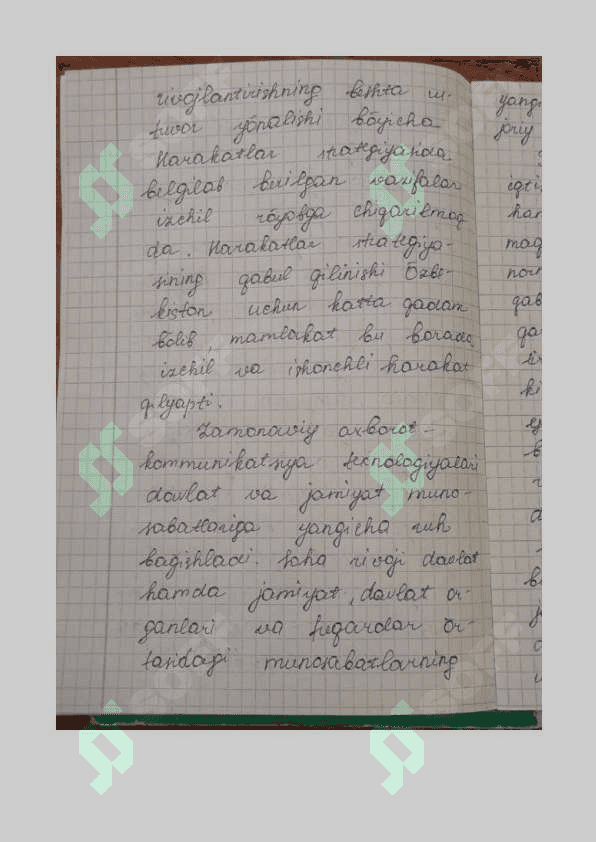 rivojlantirishning beshta us-
tuvor yònalishi bòyicha
Harakatlar strategiyasida
belgilab berilgan vazifalar
izchil ròyobga chiqarilmoq
da. Harakatlar strategiya-
sining qabul qilinishi Òzbe-
kiston uchun katta qadam
bòlib, mamlakat bu borada
izchil va ishonchli harakat
qilyapti.
Zamonaviy axborot-
kommunikatsiya texnologiyalari
davlat va jamiyat muno-
sabatlariga yangicha ruh
bagishladi. Soha rivoji davlat
hamda jamiyat, davlat or-
ganlari va fuqarolar òr-
tasidagi munosabatlarning
yang
joriy
iqti
ham
maq
nor
qab
qa
ki